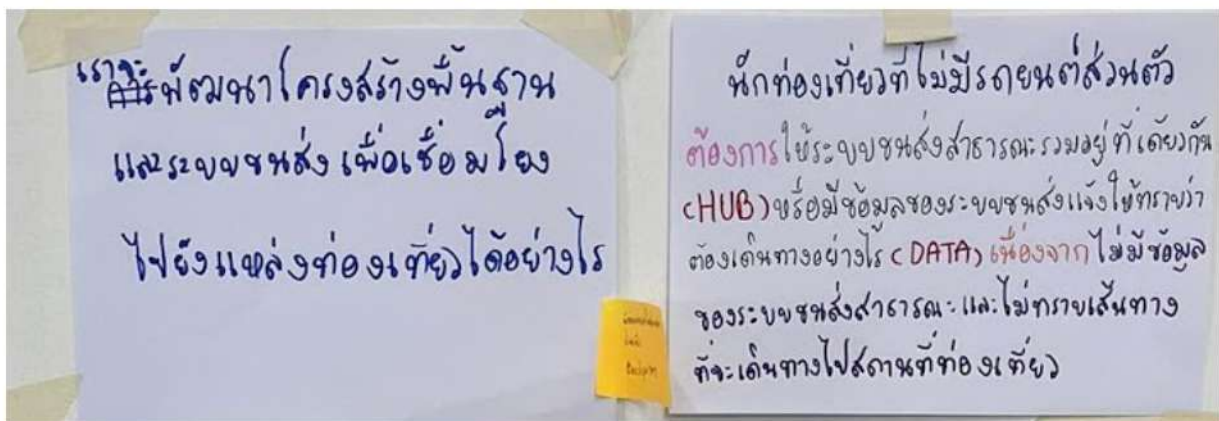 เราจะพัฒนาโครงสร้างพื้นฐาน
และระบบขนส่งเพื่อเชื่อมโยง
ไปยังแหล่งท่องเที่ยวได้อย่างไร
นักท่องเที่ยวที่ไม่มีรถยนต์ส่วนตัว
ต้องการให้ระบบขนส่งสาธารณะรวมอยู่ที่เดียวกัน
(HUB) หรือมีข้อมูลของระบบขนส่งแจ้งให้ทราบว่า
ต้องเดินทางอย่างไร (DATA) เนื่องจาก ไม่มีข้อมูล
ของระบบขนส่งสาธารณะและไม่ทราบเส้นทาง
ที่จะเดินทางไปสถานที่ท่องเที่ยว